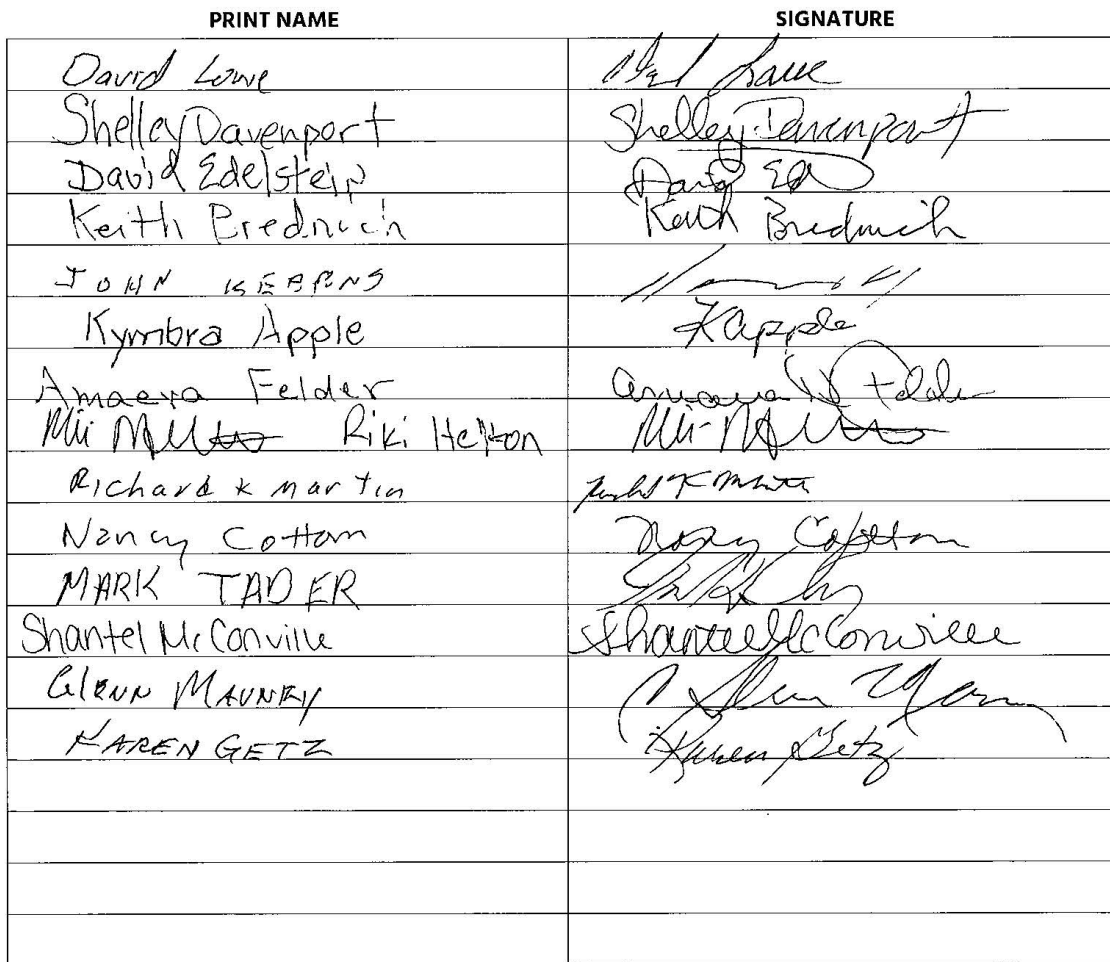 PRINT NAME SIGNATURE
David Lowe
Shelley Davenport Shelley Davenport
David Edelstein David Ed
Keith Brednich Keith Brednich
JOHN KEARNS
Kymbra Apple KApple
Felder Felder
Riki Helton
Richard K Martin
Nancy Cottom Nancy
MARK TADER
Shantel McConville Shantel McConville
Glenn MAUNEY Glenn
KAREN GETZ Karen Getz